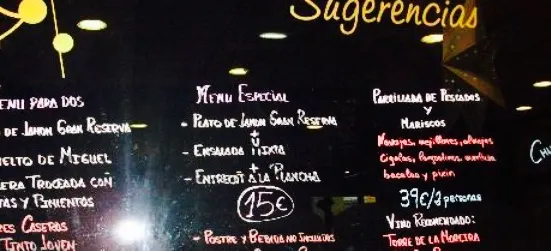 Sugerencias
MENU PARA DOS
DE JAMON GRAN RESERVA
DE MIGUEL
TROCEADA CON
Y PIMIENTOS
CASEROS
TINTO JOVEN
MENU ESPECIAL
- PLATO DE JAMON GRAN RESERVA
+
- ENSALADA MIXTA
+
- ENTRECOT A LA PLANCHA
15€
- POSTRE Y BEBIDA NO INCLUIDAS
PARRILLADA DE PESCADOS
Y
MARISCOS
Navajas, mejillones, almejas
cigalas, langostinos, merluza
bacalao y
39€/2 personas
VINO RECOMENDADO:
TORRE DE LA MOREIRA